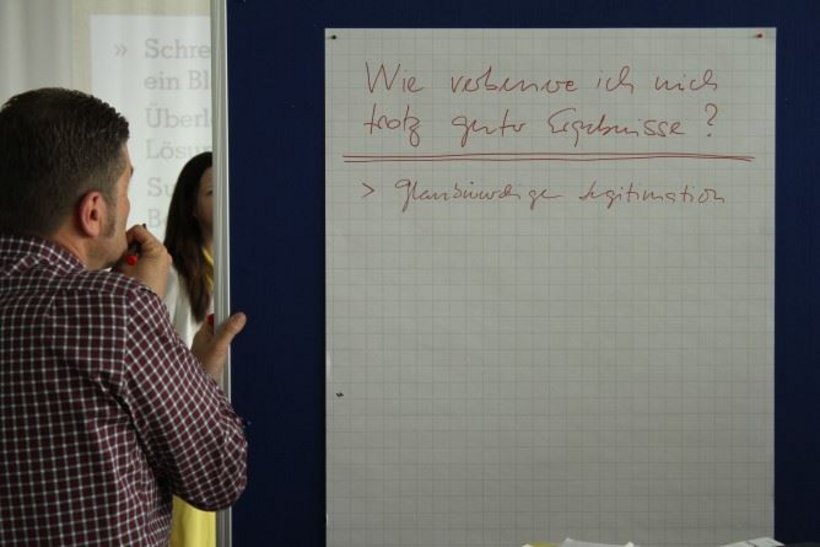 » Schre
ein Bl
Überl
Lösu
Su
B
Wie verbenne ich mich
trotz guter Ergebnisse ?
> glaubwürdige Legitimation